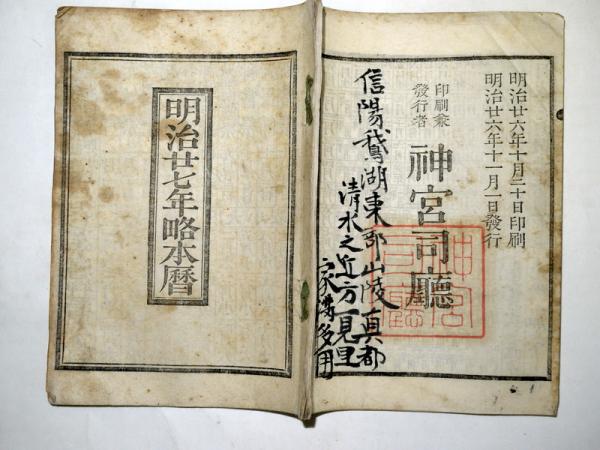 明治廿六年十月二十日印刷
明治廿六年十一月一日發行
印刷兼
發行者
神宮司廳
信陽鵞湖東部山陵真都
清水之近方一見里
家
明治廿七年略本暦